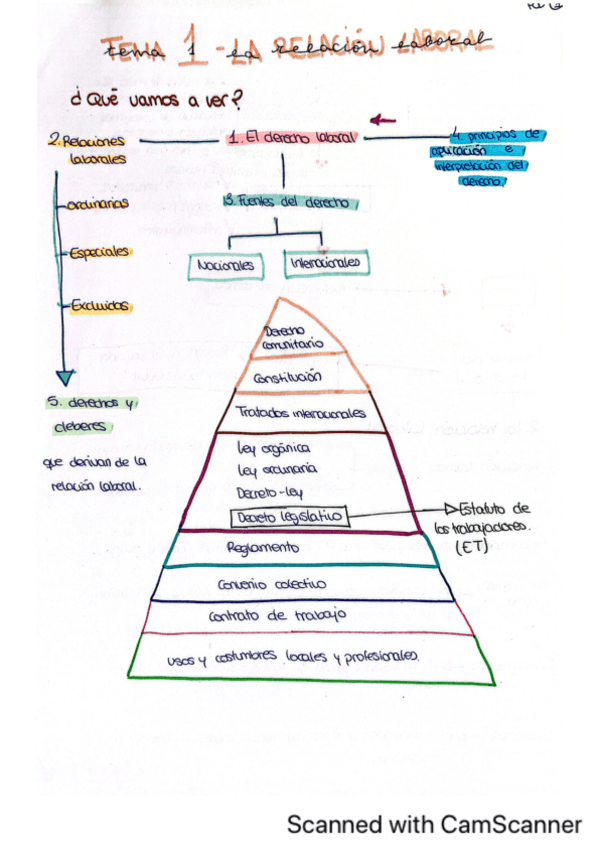 TEMA 1 - LA RELACIÓN LABORAL
tema 1 - la relación laboral
¿Qué vamos a ver?
2. Relaciones
laborales
1. El derecho laboral
4. principios de
aplicación e
interpretación del
derecho.
3. Fuentes del derecho
Nacionales
Internacionales
-Ordinarias
-Especiales
-Excluidas
5. derechos y
deberes
que derivan de la
relación laboral.
Derecho
comunitario
Constitución
Tratados internacionales
ley orgánica
ley ordinaria
Decreto-ley
Decreto legislativo
Estatuto de
los trabajadores.
(ET)
Reglamento
Convenio colectivo
Contrato de trabajo
usos y costumbres locales y profesionales.
Scanned with CamScanner